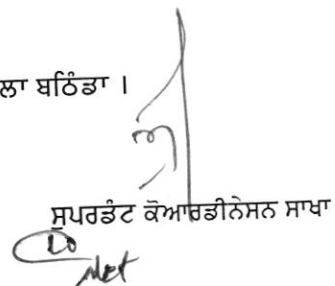 ਲਾ ਬਠਿੰਡਾ ।
ਸੁਪਰਡੰਟ ਕੋਆਰਡੀਨੇਸਨ ਸਾਖਾ